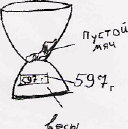 пустой
мяч
597
597 г
весы